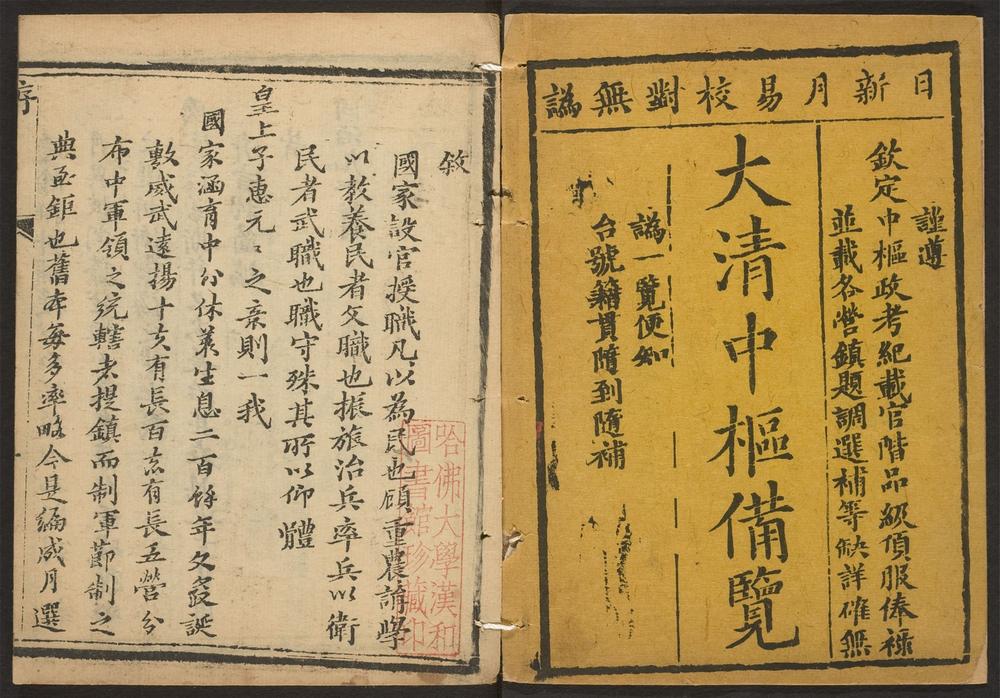 日新月易校對無譌
謹遵
欽定中樞政考紀載官階品級頂服俸祿
並載各營鎮題調選補等缺詳確無
大清中樞備覽
譌一覽便知
台號籍貫隨到隨補
敘
國家設官授職凡以為民也顧重農諭學
以教養民者文職也振旅治兵率兵以衛
民者武職也職守殊其所以仰體
皇上子惠元〻之亲則一我
國家涵育中分休養生息二百餘年文
誕
敷威武遠揚十夫有長百夫有長五營分
布中軍領之統轄者提鎮而制軍節制之
典至鉅也舊本每多率略今是編成月選
序
哈佛大學漢和
圖書館珍藏印